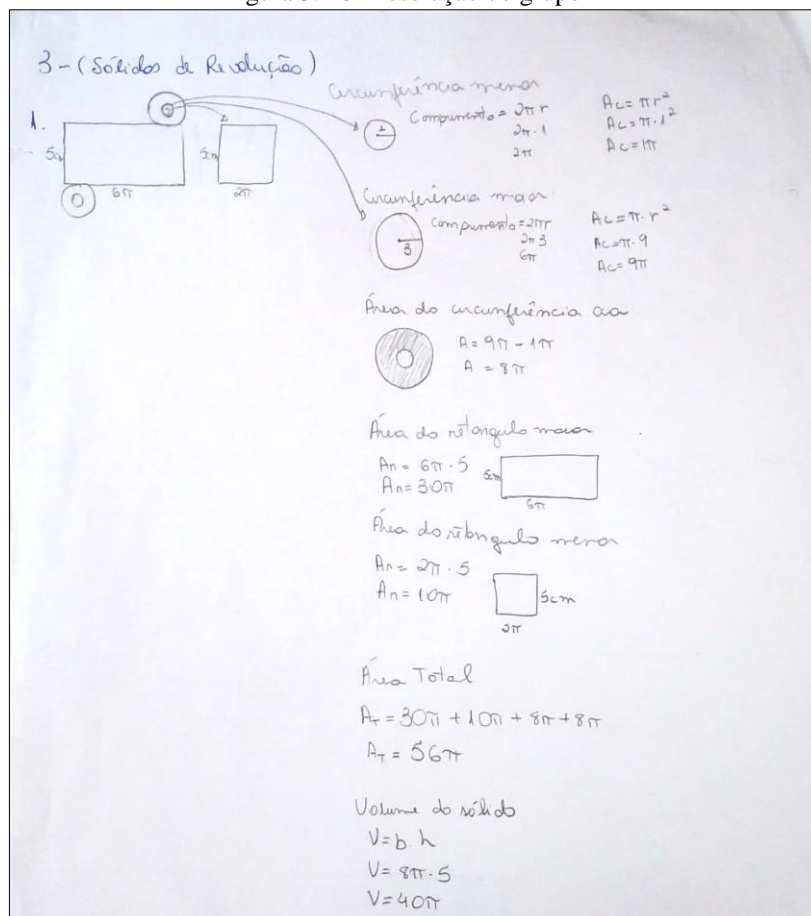 3 - (Sólidos de Revolução)
1.
5cm
6π
5cm
2π
Circunferência menor
1
Comprimento = 2πr
2π.1
2π
Ac = πr²
Ac = π.1²
Ac = 1π
Circunferência maior
3
Comprimento = 2πr
2π3
6π
Ac = π.r²
Ac = π.9
Ac = 9π
Área do circunferência
A = 9π - 1π
A = 8π
Área do retangulo maior
An = 6π.5
An = 30π
5cm
6π
Área do retangulo menor
An = 2π.5
An = 10π
5cm
2π
Área Total
AT = 30π + 10π + 8π + 8π
AT = 56π
Volume do sólido
V = b.h
V = 8π.5
V = 40π